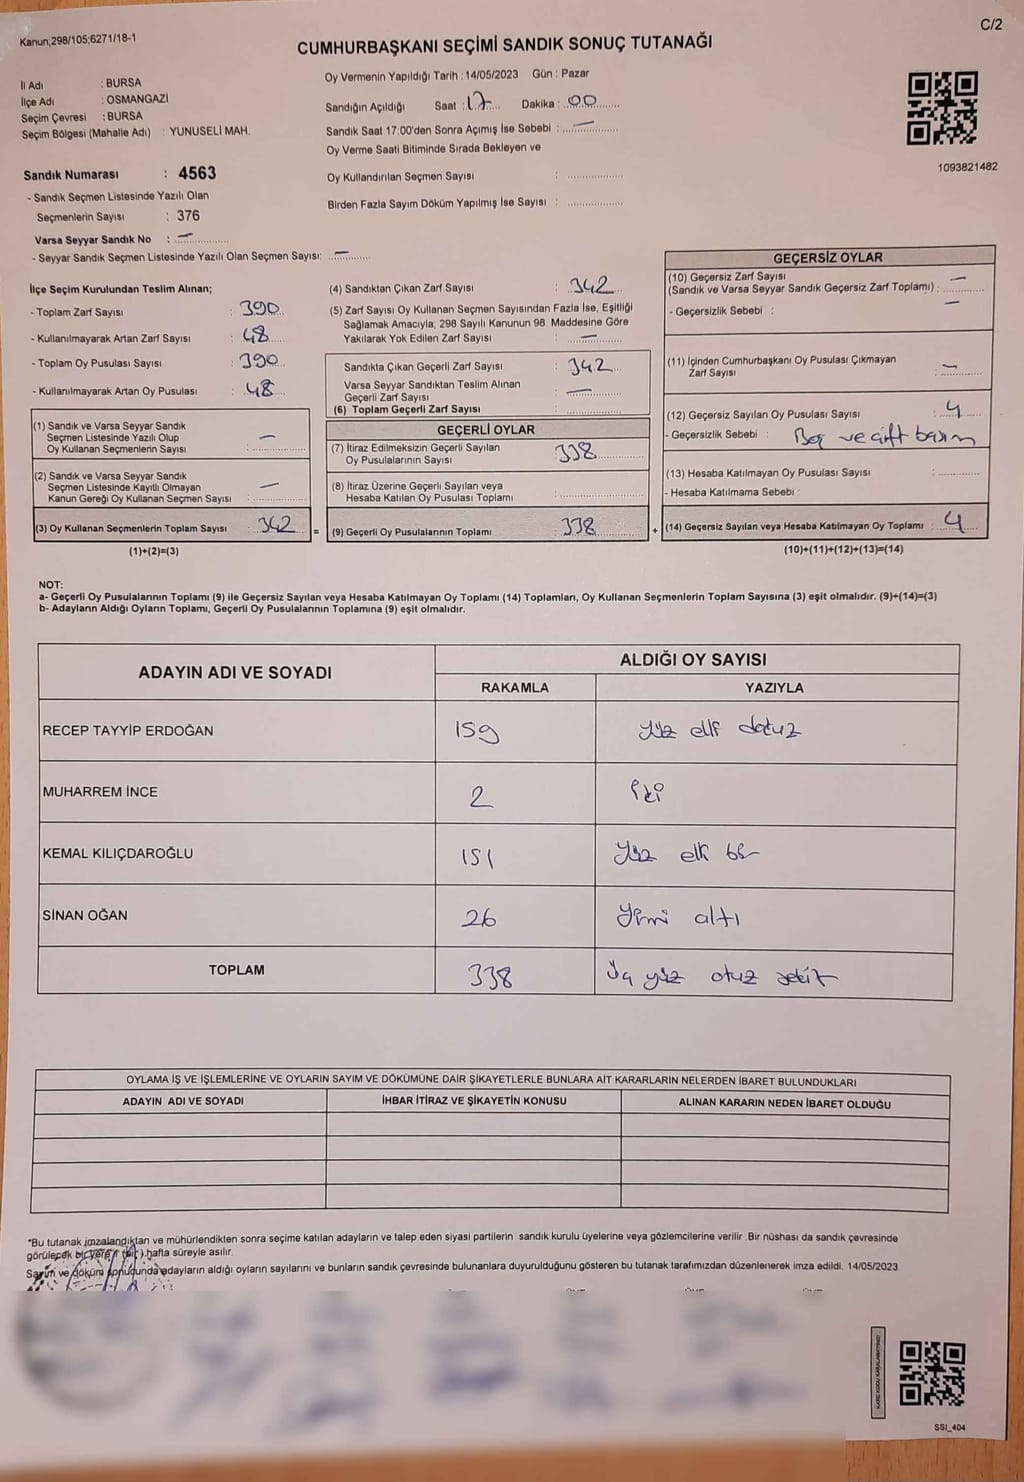 C/2
Kanun;298/105;6271/18-1
CUMHURBAŞKANI SEÇİMİ SANDIK SONUÇ TUTANAĞI
İl Adı : BURSA
İlçe Adı : OSMANGAZİ
Seçim Çevresi : BURSA
Seçim Bölgesi (Mahalle Adı) : YUNUSELİ MAH.
Sandık Numarası : 4563
- Sandık Seçmen Listesinde Yazılı Olan
Seçmenlerin Sayısı : 376
Varsa Seyyar Sandık No : —
- Seyyar Sandık Seçmen Listesinde Yazılı Olan Seçmen Sayısı: —
Oy Vermenin Yapıldığı Tarih :14/05/2023 Gün : Pazar
Sandığın Açıldığı Saat : 17 Dakika : 00
Sandık Saat 17:00'den Sonra Açımış İse Sebebi : —
Oy Verme Saati Bitiminde Sırada Bekleyen ve
Oy Kullandırılan Seçmen Sayısı :
Birden Fazla Sayım Döküm Yapılmış İse Sayısı :
1093821482
İlçe Seçim Kurulundan Teslim Alınan;
- Toplam Zarf Sayısı : 390
- Kullanılmayarak Artan Zarf Sayısı : 48
- Toplam Oy Pusulası Sayısı : 390
- Kullanılmayarak Artan Oy Pusulası : 48
(1) Sandık ve Varsa Seyyar Sandık
Seçmen Listesinde Yazılı Olup
Oy Kullanan Seçmenlerin Sayısı : —
(2) Sandık ve Varsa Seyyar Sandık
Seçmen Listesinde Kayıtlı Olmayan
Kanun Gereği Oy Kullanan Seçmen Sayısı : —
(3) Oy Kullanan Seçmenlerin Toplam Sayısı : 342 =
(1)+(2)=(3)
(4) Sandıktan Çıkan Zarf Sayısı : 342
(5) Zarf Sayısı Oy Kullanan Seçmen Sayısından Fazla İse, Eşitliği
Sağlamak Amacıyla; 298 Sayılı Kanunun 98. Maddesine Göre
Yakılarak Yok Edilen Zarf Sayısı : —
Sandıkta Çıkan Geçerli Zarf Sayısı : 342
Varsa Seyyar Sandıktan Teslim Alınan
Geçerli Zarf Sayısı : —
(6) Toplam Geçerli Zarf Sayısı :
GEÇERLİ OYLAR
(7) İtiraz Edilmeksizin Geçerli Sayılan
Oy Pusulalarının Sayısı : 338
(8) İtiraz Üzerine Geçerli Sayılan veya
Hesaba Katılan Oy Pusulası Toplamı :
(9) Geçerli Oy Pusulalarının Toplamı : 338 +
GEÇERSİZ OYLAR
(10) Geçersiz Zarf Sayısı
(Sandık ve Varsa Seyyar Sandık Geçersiz Zarf Toplamı) : —
- Geçersizlik Sebebi : —
(11) İçinden Cumhurbaşkanı Oy Pusulası Çıkmayan
Zarf Sayısı : —
(12) Geçersiz Sayılan Oy Pusulası Sayısı : 4
- Geçersizlik Sebebi : Boş ve çift basım
(13) Hesaba Katılmayan Oy Pusulası Sayısı :
- Hesaba Katılmama Sebebi :
(14) Geçersiz Sayılan veya Hesaba Katılmayan Oy Toplamı : 4
(10)+(11)+(12)+(13)=(14)
NOT:
a- Geçerli Oy Pusulalarının Toplamı (9) ile Geçersiz Sayılan veya Hesaba Katılmayan Oy Toplamı (14) Toplamları, Oy Kullanan Seçmenlerin Toplam Sayısına (3) eşit olmalıdır. (9)+(14)=(3)
b- Adayların Aldığı Oyların Toplamı, Geçerli Oy Pusulalarının Toplamına (9) eşit olmalıdır.
ADAYIN ADI VE SOYADI ALDIĞI OY SAYISI
RAKAMLA YAZIYLA
RECEP TAYYİP ERDOĞAN 159 Yüz elli dokuz
MUHARREM İNCE 2 İki
KEMAL KILIÇDAROĞLU 151 Yüz elli bir
SİNAN OĞAN 26 Yirmi altı
TOPLAM 338 Üç yüz otuz sekiz
OYLAMA İŞ VE İŞLEMLERİNE VE OYLARIN SAYIM VE DÖKÜMÜNE DAİR ŞİKAYETLERLE BUNLARA AİT KARARLARIN NELERDEN İBARET BULUNDUKLARI
ADAYIN ADI VE SOYADI İHBAR İTİRAZ VE ŞİKAYETİN KONUSU ALINAN KARARIN NEDEN İBARET OLDUĞU
*Bu tutanak imzalandıktan ve mühürlendikten sonra seçime katılan adayların ve talep eden siyasi partilerin sandık kurulu üyelerine veya gözlemcilerine verilir. Bir nüshası da sandık çevresinde
görülecek bir yere 1 (bir) hafta süreyle asılır.
Sayım ve döküm sonucunda adayların aldığı oyların sayılarını ve bunların sandık çevresinde bulunanlara duyurulduğunu gösteren bu tutanak tarafımızdan düzenlenerek imza edildi. 14/05/2023
SSI_404